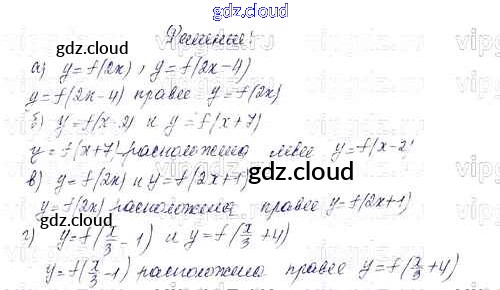 gdz.cloud
Решение:
gdz.cloud
а) y = f(2x), y = f(2x-4)
y = f(2x-4) правее y = f(2x)
б) y = f(x-2) и y = f(x+7)
y = f(x+7) расположена левее y = f(x-2)
в) y = f(2x) и y = f(2x+1)
gdz.cloud
y = f(2x) расположена правее y = f(2x+1)
gdz.cloud
г) y = f(x/3 - 1) и y = f(x/3 + 4)
y = f(x/3 - 1) расположена правее y = f(x/3 + 4)
gdz.cloud